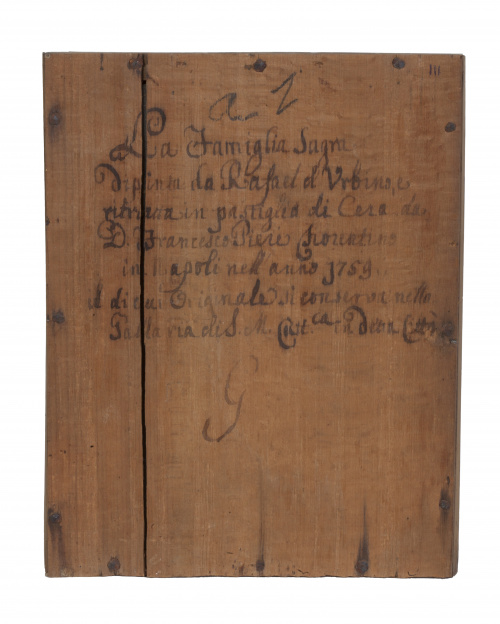 a 1
La Famiglia Sagra
Dipinta da Rafael d' Urbino, e
ritratta in pastiglio di Cera da
D. Francesco Pieri Fiorentino
in Napoli nell' anno 1759.
il di cui Originale si conserva nella
di S. M. Catt.ca in detta Città
G